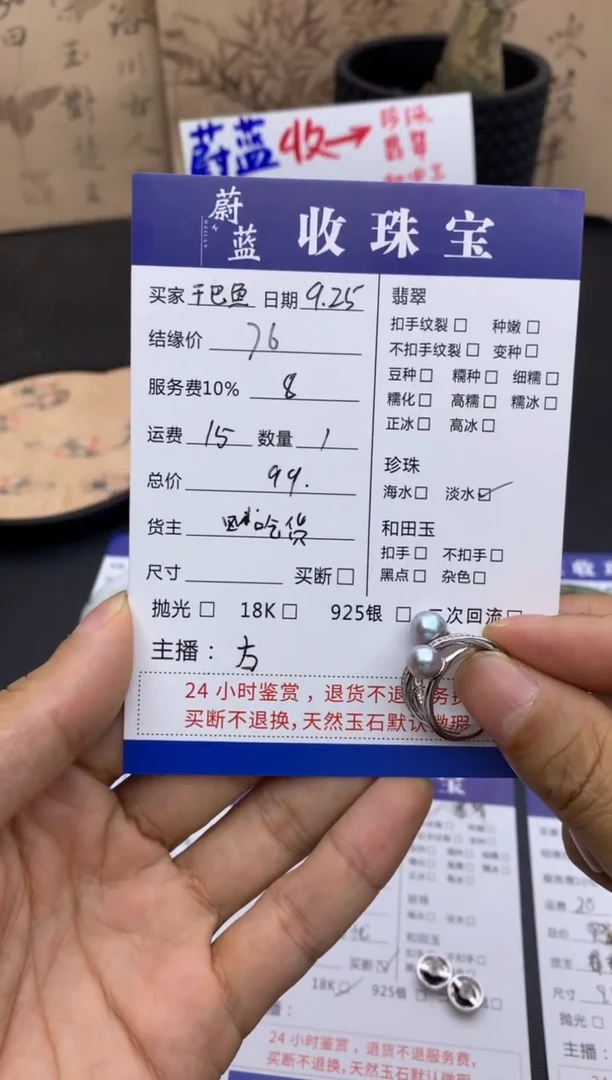 蔚蓝 收→
翡翠
蔚蓝 收珠宝
买家 干巴鱼 日期 9.25
结缘价 76
服务费10% 8
运费 15 数量 1
总价 99.
货主 吃货
尺寸 买断□
翡翠
扣手纹裂□ 种嫩□
不扣手纹裂□ 变种□
豆种□ 糯种□ 细糯□
糯化□ 高糯□ 糯冰□
正冰□ 高冰□
珍珠
海水□ 淡水☑
和田玉
扣手□ 不扣手□
黑点□ 杂色□
抛光□ 18K□ 925银□ 二次回流□
主播：方
24小时鉴赏，退货不退
买断不退换,天然玉石默认微瑕
和田玉
买断
18K 925银
24小时鉴赏，退货不退服务费,
买断不退换,天然玉石默认微瑕
运费 25
总价
货主
尺寸
抛光□
主播：